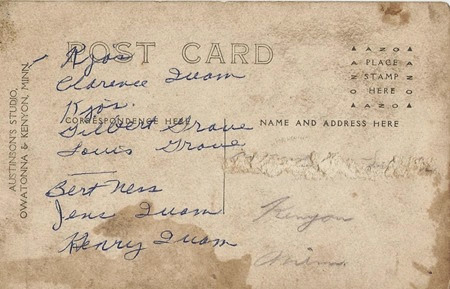 POST CARD
AZO
PLACE
STAMP
HERE
AZO
AUSTINSON'S STUDIO,
OWATONNA & KENYON, MINN.
CORRESPONDENCE HERE
NAME AND ADDRESS HERE
Kjos
Clarence Quam
Kjos.
Gilbert Grove
Louis Grove
Bert Ness
Jens Quam
Henry Quam
Kenyon
Minn.